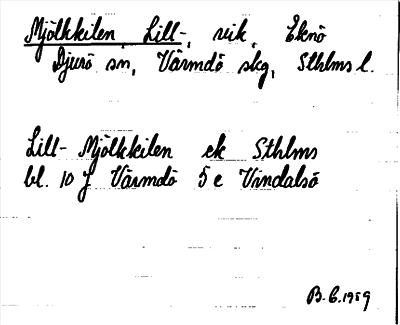 Mjölkkilen, Lill-, vik, Eknö
Djurö sn, Värmdö skg, Sthlms l.
Lill-Mjölkkilen ek Sthlms
bl. 10 J Värmdö 5 e Vindalsö
B. C. 1959